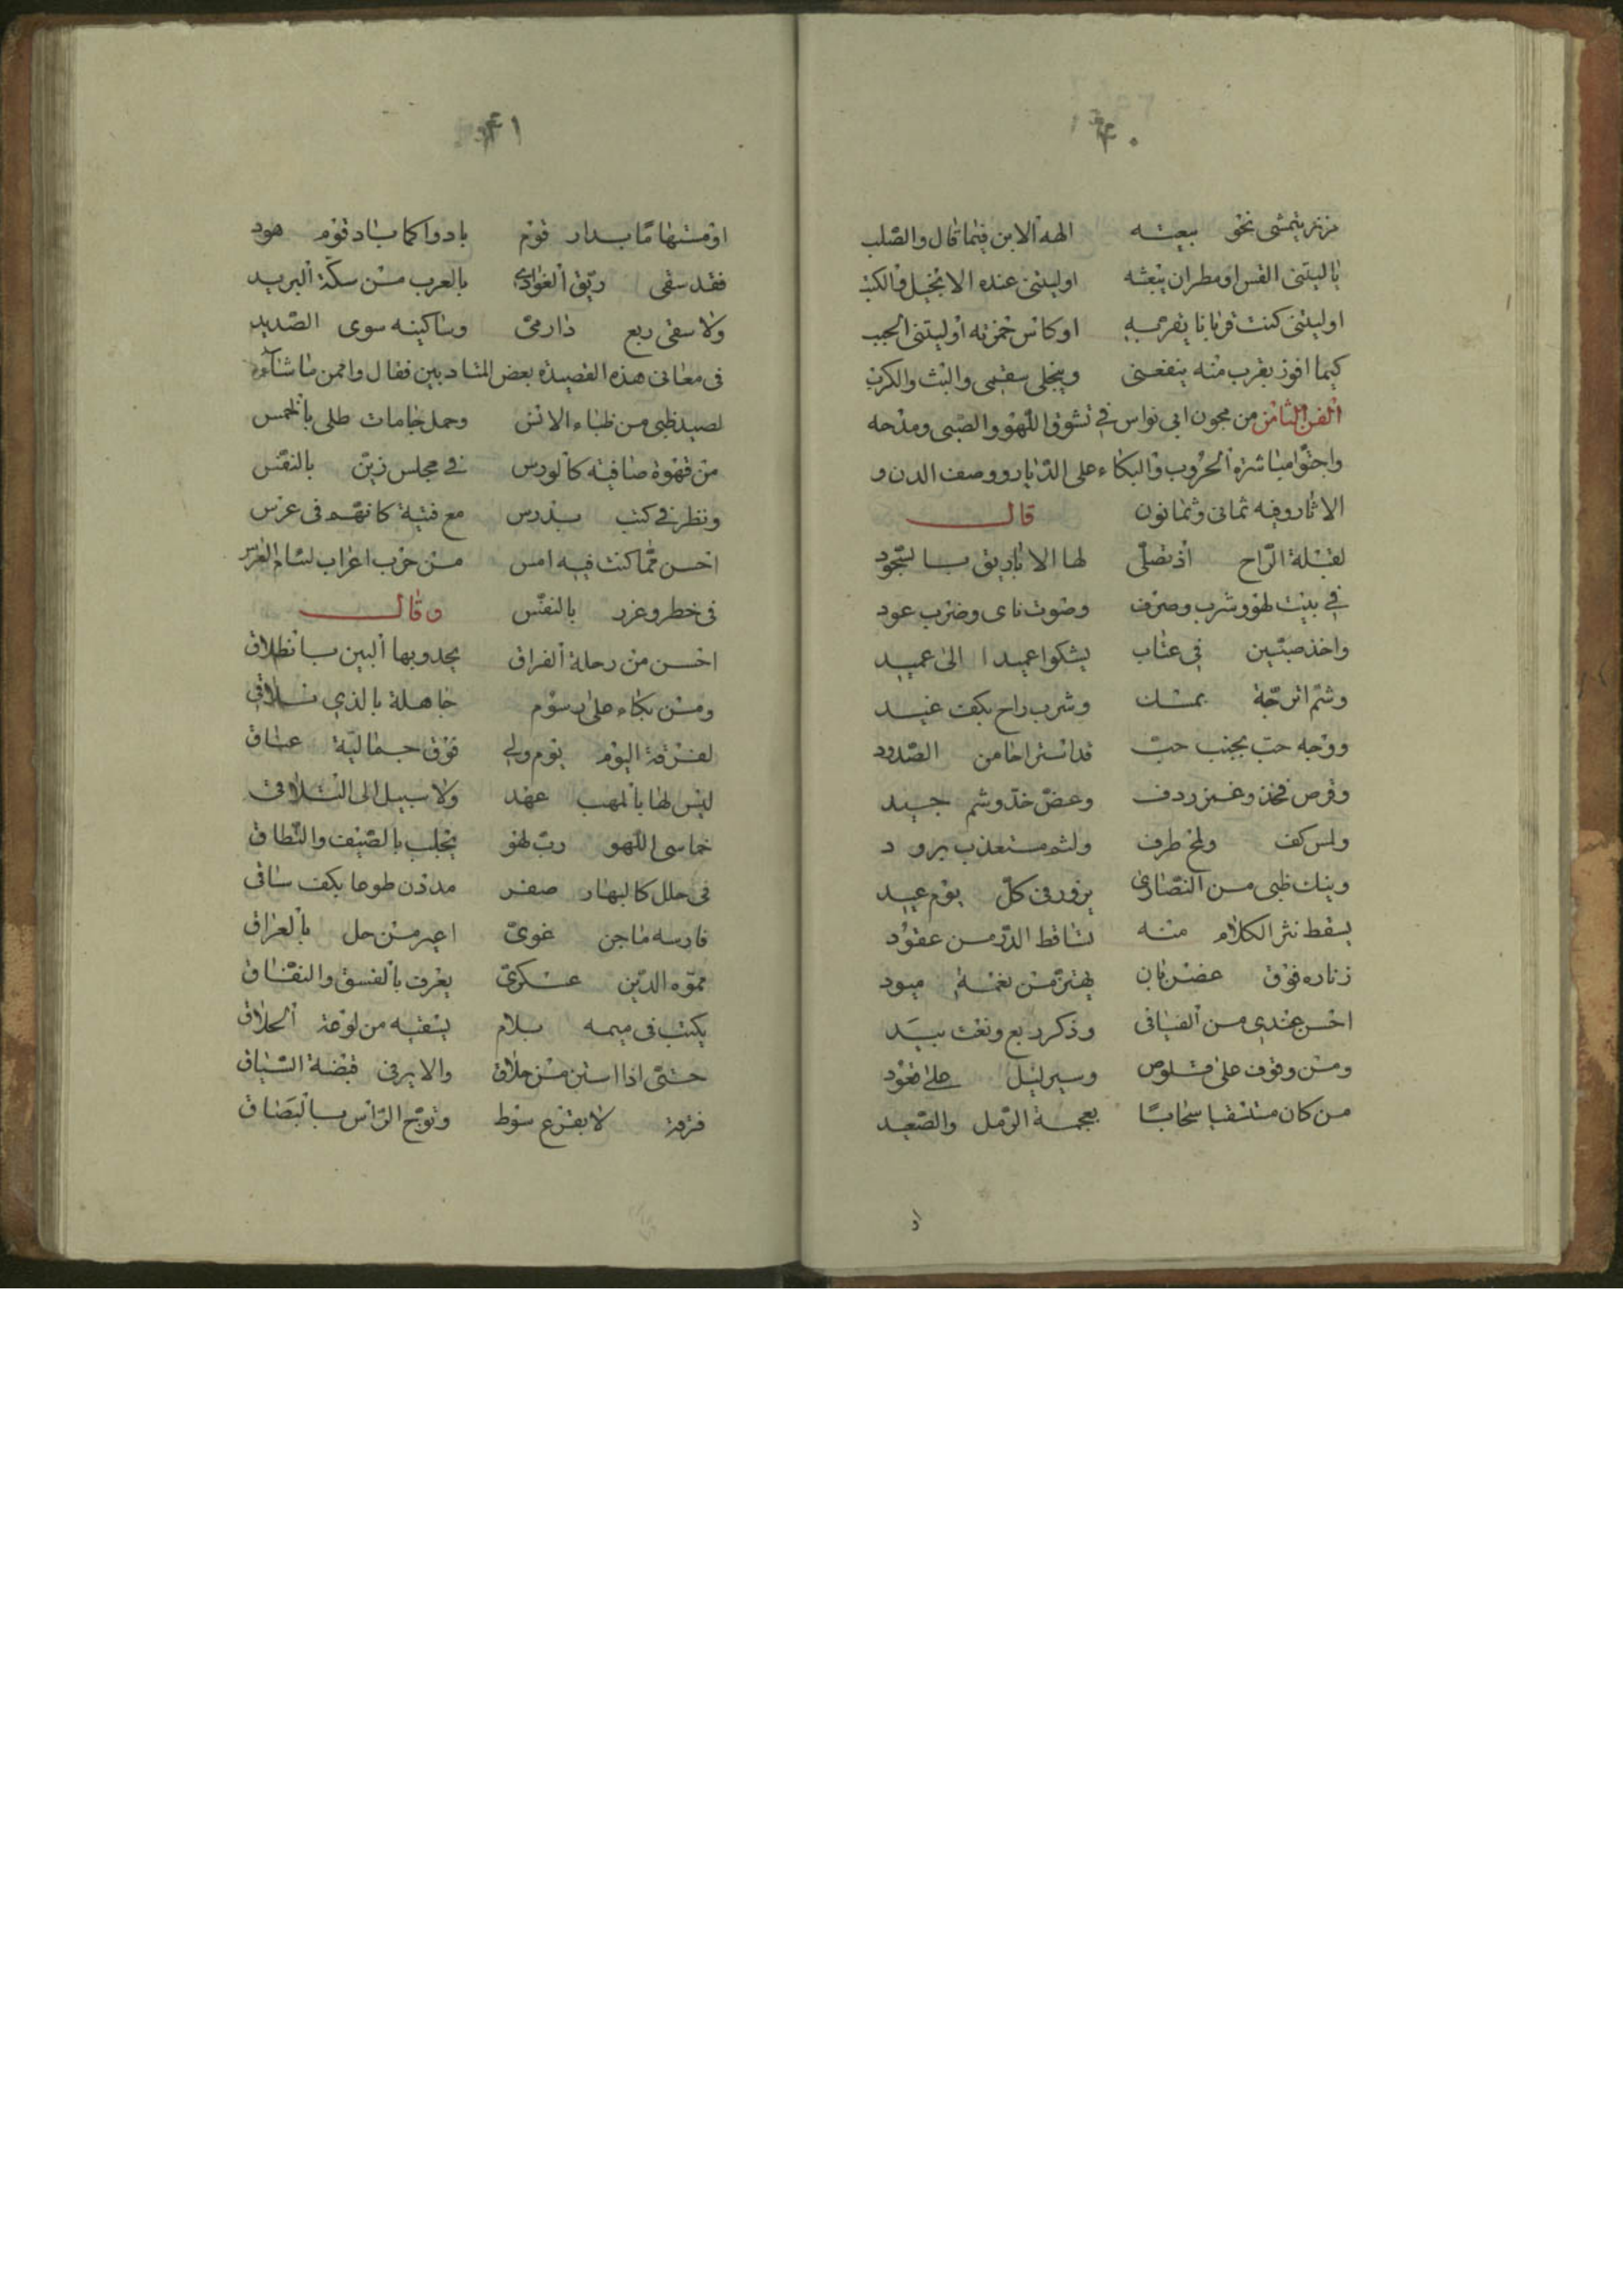 ١٤٠
مزنر يتمشى نحو بيعته الهه الابن فيما قال والصلب
يا ليتنى القس او مطران بيعته او ليتنى عنده الانجيل والكتب
او ليتنى كنت قربانا يقربه او كاس خمرته او ليتنى الحبب
كيما افوز بقرب منه ينفعنى وينجلى سقمى والبث والكرب
الفن الثامن من مجون ابى نواس فى تشوق اللهو والصبى ومدحه
مباشرة الحروب والبكاء على الديار ووصف الدن و
الاثار وفيه ثمانى وثمانون قال
لقبلة الراح اذ تصلى لها الاباريق بالسجود
فى بيت لهو وشرب وصرف وصوت ناى وضرب عود
واخذ صبين فى عتاب يشكوا عميدا الى عميد
وشم اترجة بمسك وشرب راح بكف غيد
ووجه حب بجنب حب قد استراحا من الصدود
وقرص فخذ وغمز ردف وعض خد وشم جيد
ولمس كف ولمح طرف ولثم مستعذب برود
ونيك ظبى من النصارى يزور فى كل يوم عيد
يسقط نثر الكلام منه تساقط الدر من عقود
زناره فوق غصن بان يهتز من نعمة ميود
احسن عندى من الفيافى وذكر ربع ونعت بيد
ومن وقوف على قلوص وسير ليل على قعود
من كان مستسقيا سحابا بعجمة الرمل والصعيد
او
١٤١
او مستهاما بدار قوم بادوا كما باد قوم هود
فقد سقى ريق الغوادى بالعرب من سكة البريد
ولا سقى ربع دارمى وساكنيه سوى الصديد
فى معانى هذه القصيدة بعض المتادبين فقال واحمن ما شاء
لصيد ظبى من ظباء الانس وحمل جامات طلى بالخمس
من قهوة صافية كالورس فى مجلس زين بالنفس
ونظر فى كتب بدرس مع فتية كانهم فى عرس
احسن مما كنت فيه امس من حرب اعراب لئام الغرس
فى خطر وغرر بالنفس وقال
احسن من رحلة الفراق يحدو بها البين بانطلاق
ومن بكاء على رسوم جاهلة بالذى تلاقى
لفرقة اليوم يوم ولى فوق جمالية عتاق
ليس لها بالمهب عهد ولا سبيل الى التلاقى
خماسى اللهو رب لهو يجلب بالصيف والنطاق
فى حلل كالبهار صفر مدذن طوعا بكف ساقى
فارسه ماجن غوى اعير من حل بالعراق
مموه الدين عسكرى يعرف بالفسق والنفاق
يكتب فى ميمه بلام يسقيه من لوعة الحلاق
حتى اذا استن من حلاق والاير فى قبضة السباق
فرقة لا بقرع سوط وتوج الراس بالبصاق